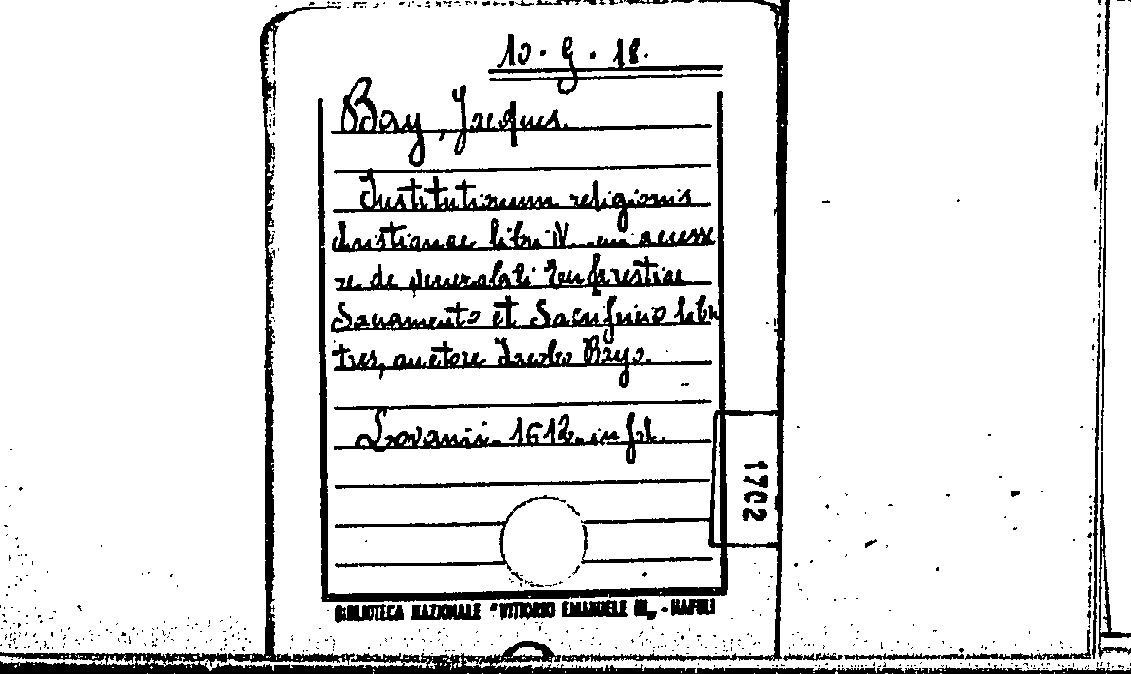 10. G. 18.
Bay, Jacques.
Institutionum religionis
christianae libri IV... accesse
re de venerabili Eucharistiae
Sacramento et Sacrificio libri
tres, auctore Iacobo Bayo.
Lovanii. 1612. in fol.
1702
BIBLIOTECA NAZIONALE "VITTORIO EMANUELE III„ - NAPOLI